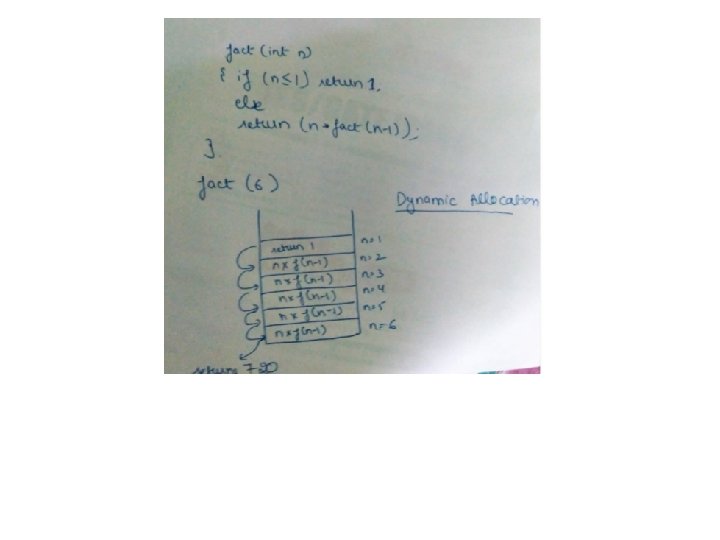 fact (int n)
{ if (n≤1) return 1,
else
return (n * fact (n-1));
}.
fact (6)
Dynamic Allocation
return 1 n=1
n x f(n-1) n=2
n x f(n-1) n=3
n x f(n-1) n=4
n x f(n-1) n=5
n x f(n-1) n=6
return 720